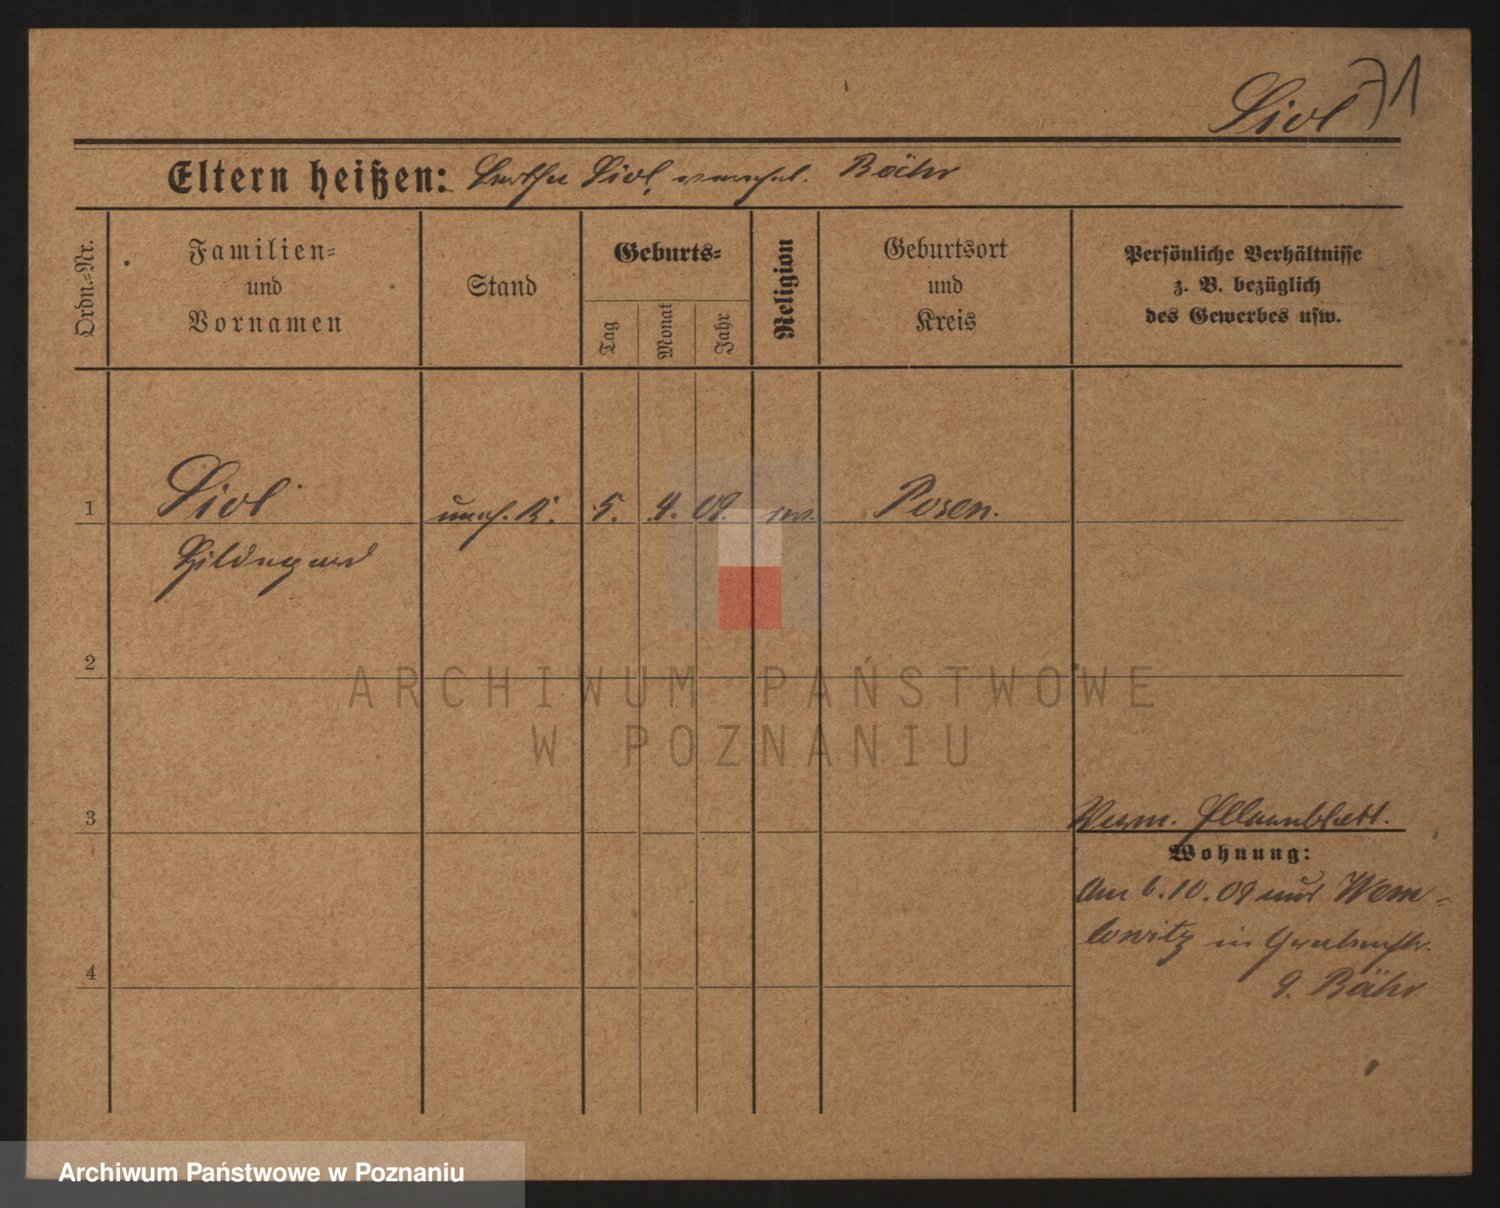 Siol 71
Eltern heißen: Bertha Siol, verehel. Bähr
Ordn.-Nr.
Familien-
und
Vornamen
Stand
Geburts-
Tag
Monat
Jahr
Religion
Geburtsort
und
Kreis
Persönliche Verhältnisse
z. B. bezüglich
des Gewerbes usw.
1 Siol unehl. K. 5. 4. 09. ev. Posen.
Hildegard
2
3
4
Verm.
Wohnung:
Am 6.10.09 nach
in Grabenstr.
9. Bähr
ARCHIWUM PAŃSTWOWE
W POZNANIU
Archiwum Państwowe w Poznaniu